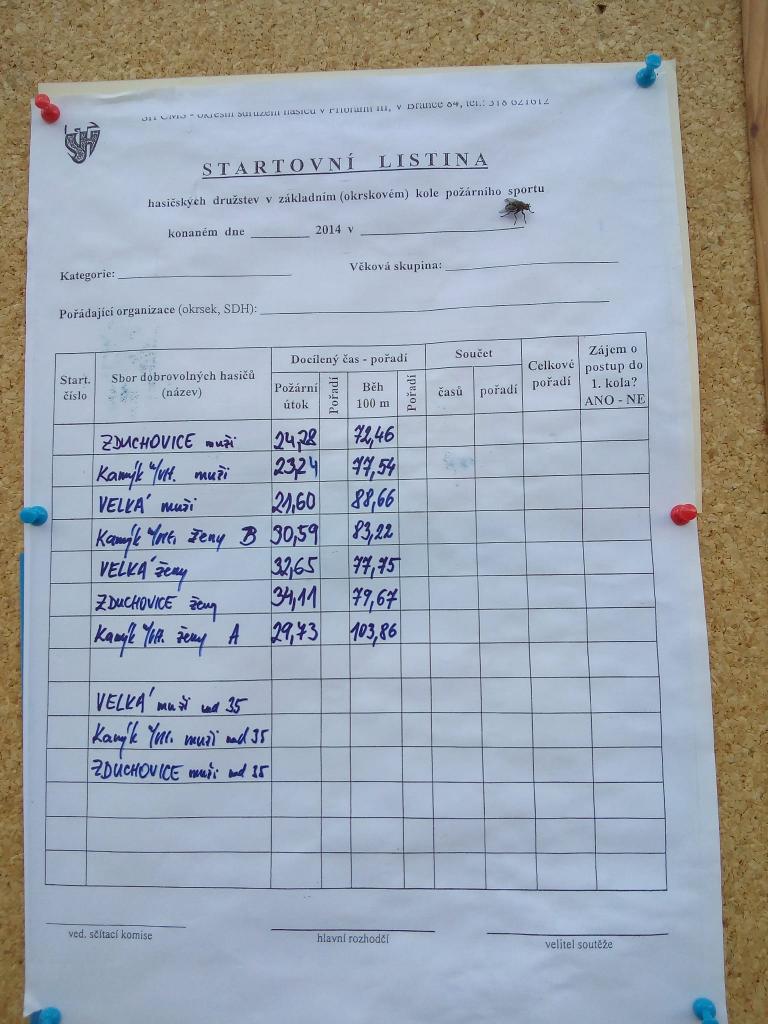 SH ČMS - okresní sdružení hasičů v Příbrami III, V Brance 84, tel.: 318 621612
STARTOVNÍ LISTINA
hasičských družstev v základním (okrskovém) kole požárního sportu
konaném dne ________ 2014 v ________
Kategorie: ________ Věková skupina: ________
Pořádající organizace (okrsek, SDH): ________
Start. číslo Sbor dobrovolných hasičů (název) Docílený čas - pořadí Součet Celkové pořadí Zájem o postup do 1. kola? ANO - NE
Požární útok Pořadí Běh 100 m Pořadí časů pořadí
ZDUCHOVICE muži 24,28 72,46
Kamýk n/Vlt. muži 23,24 77,54
VELKÁ muži 21,60 88,66
Kamýk n/Vlt. ženy B 30,59 83,22
VELKÁ ženy 32,65 77,75
ZDUCHOVICE ženy 34,11 79,67
Kamýk n/Vlt. ženy A 29,73 103,86
VELKÁ muži nad 35
Kamýk n/Vlt. muži nad 35
ZDUCHOVICE muži nad 35
ved. sčítací komise hlavní rozhodčí velitel soutěže